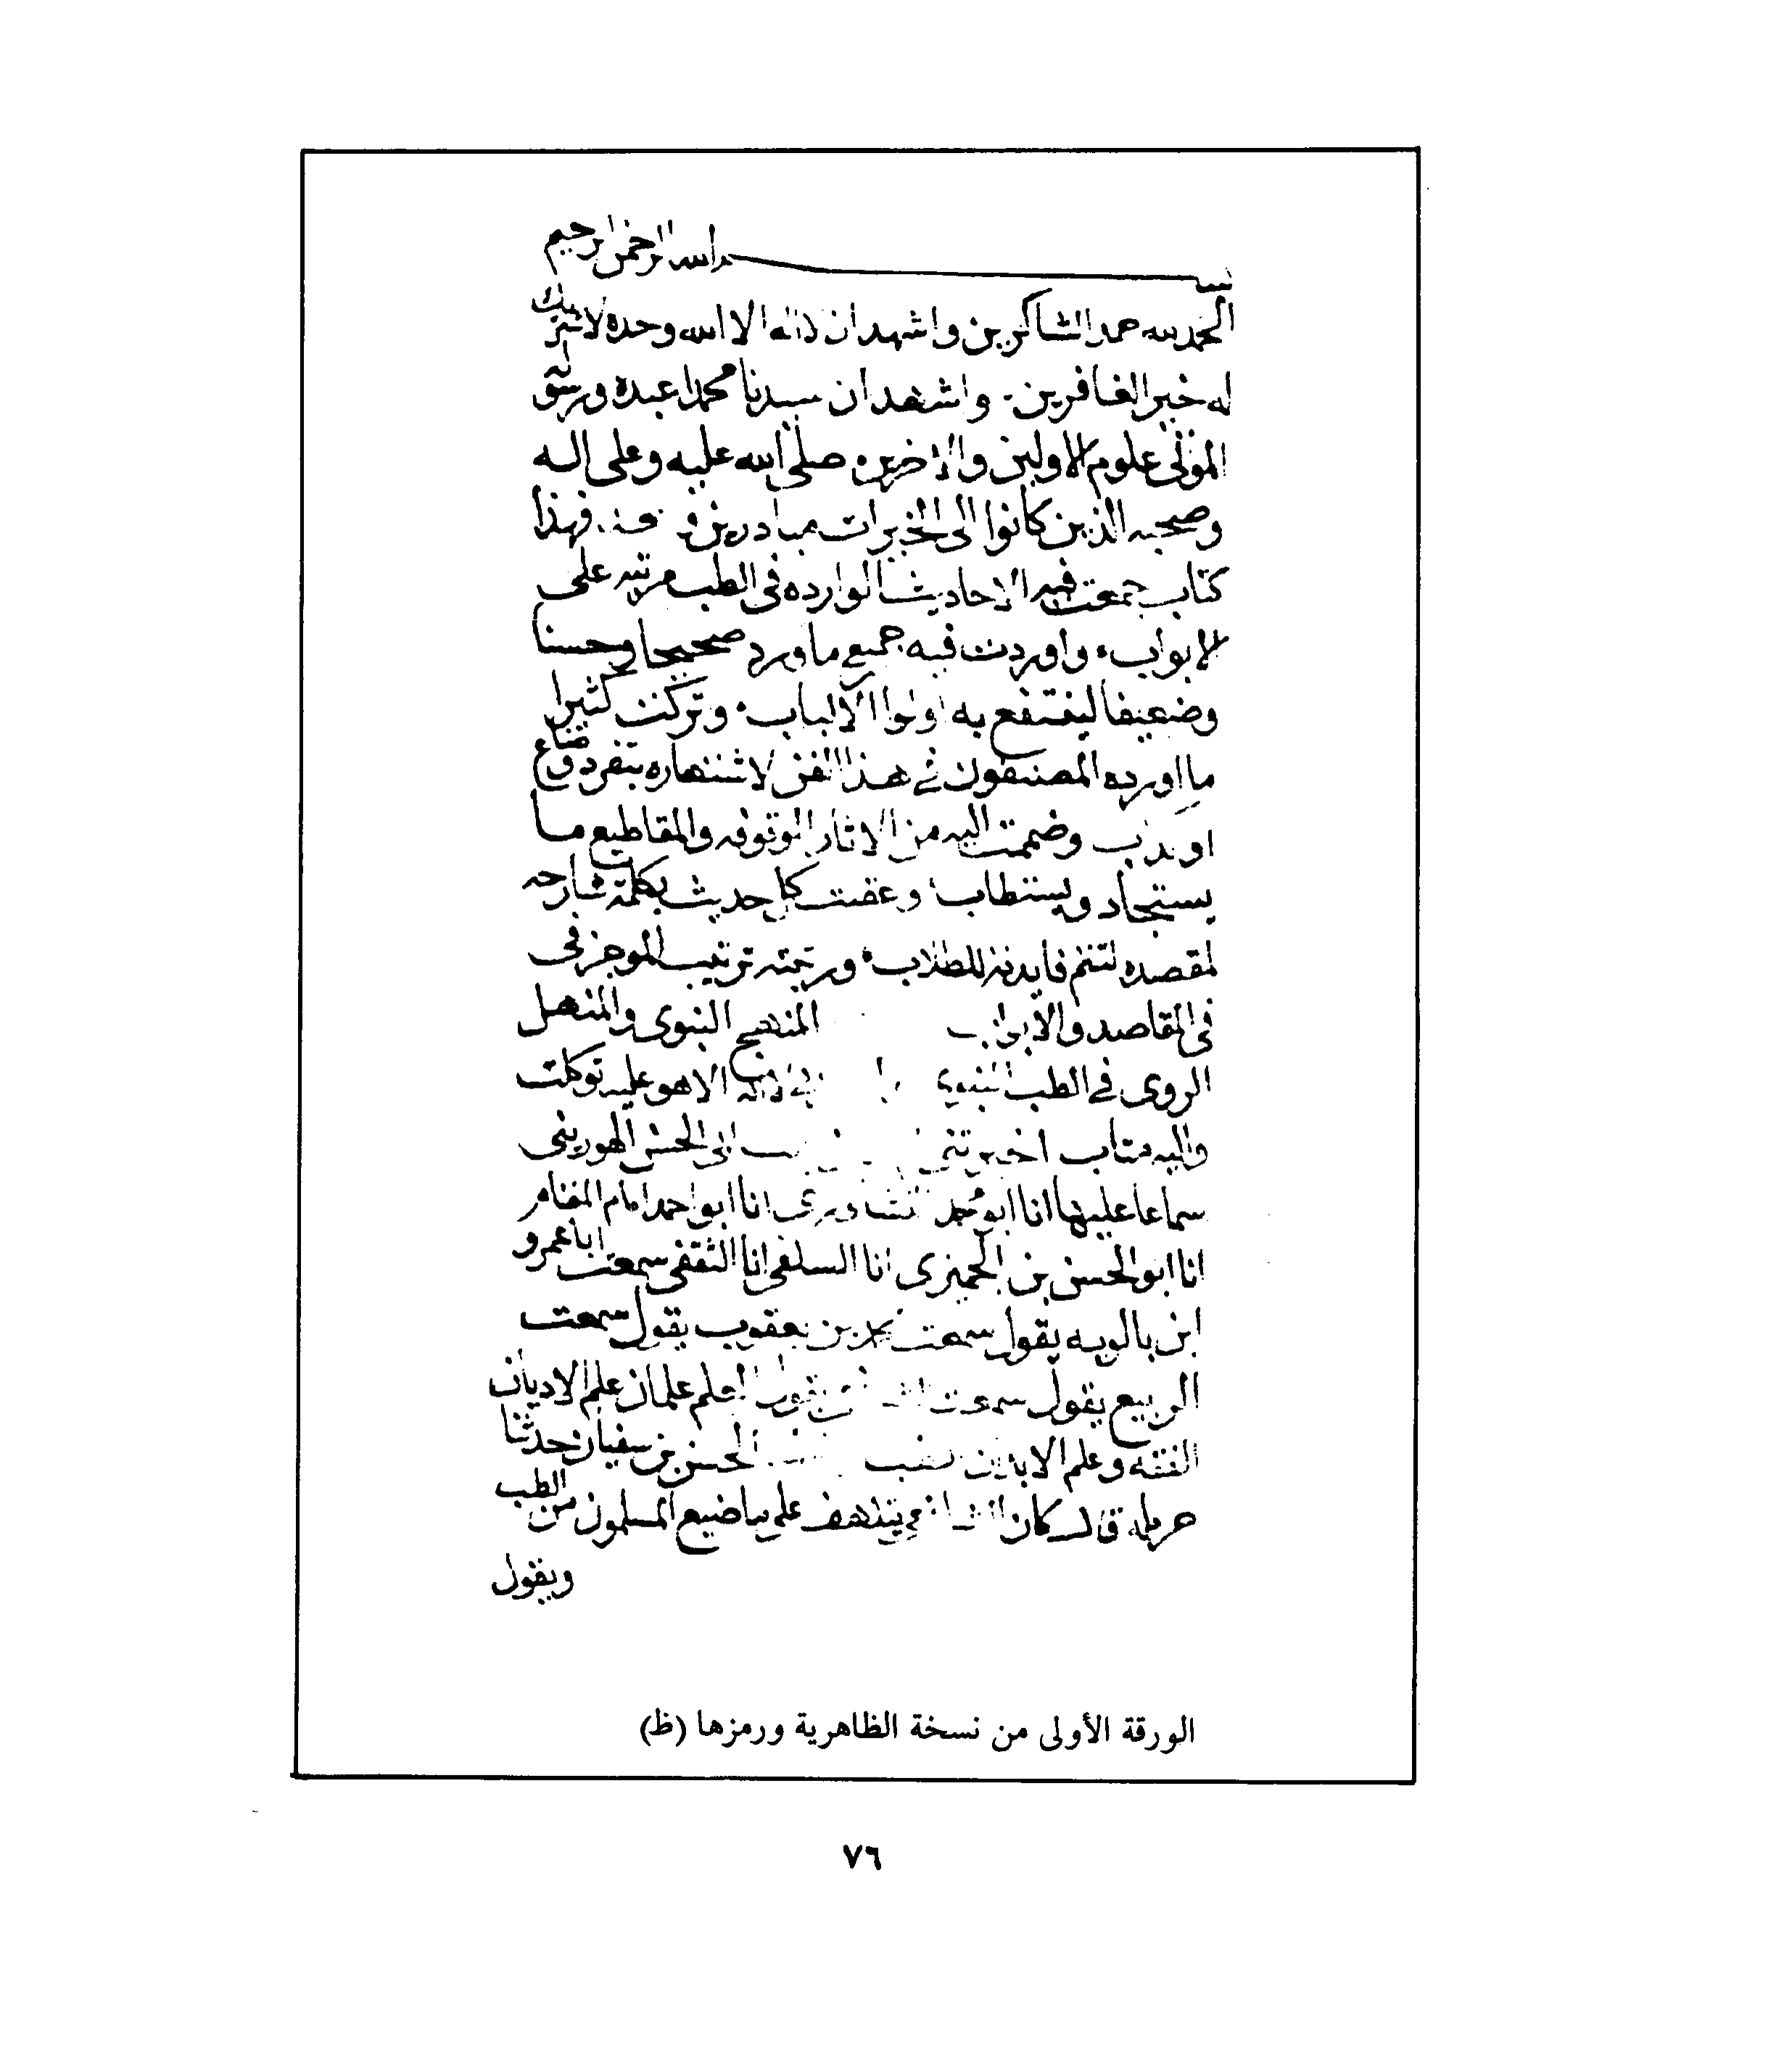 بسم الله الرحمن الرحيم
الحمد لله حمد الشاكرين واشهد ان لا اله الا الله وحده لا شريك
له خير الغافرين واشهد ان سيدنا محمدا عبده ورسوله
المؤتى علوم الاولين والاخرين صلى الله عليه وعلى اله
وصحبه الذين كانوا الى الخيرات مبادرين فهذا
كتاب جمعت فيه الاحاديث الوارده في الطب مرتبه على
الابواب واوردت فيه جميع ما ورد صحيحا وحسنا
وضعيفا لينتفع به اولوا الالباب وتركت كثيرا
ما اورده المصنفون في هذا الفن لاشتهاره بتفرد وضاع
او كذاب وضممت اليه من الاثار الموقوفه والمقاطيع ما
يستجاد ويستطاب وعقبت كل حديث بكلمة شارحه
لمقصده لتتم فايدته للطلاب ورتبته ترتيب الموجز في
في المقاصد والابواب المنهج النبوى والمنهل
الروى في الطب النبوي لا اله الا هو عليه توكلت
واليه متاب اخبرتني ابى الحسن الهورينى
سماعا عليها انا ابو محمد النشاورى انا ابو احمد امام المقام
انا ابو الحسن بن الجميزى انا السلفى انا الثقفى سمعت ابا عمرو
ابن بالويه يقول سمعت محمد بن يعقوب يقول سمعت
الربيع يقول سمعت الشافعى يقول العلم علمان علم الاديان
الفقه وعلم الابدان الطب الحسن بن سفيان حدثنا
حرمله قال كان الشافعي يتلهف على ما ضيع المسلمون من الطب
ويقول
الورقة الأولى من نسخة الظاهرية ورمزها (ظ)
٧٦